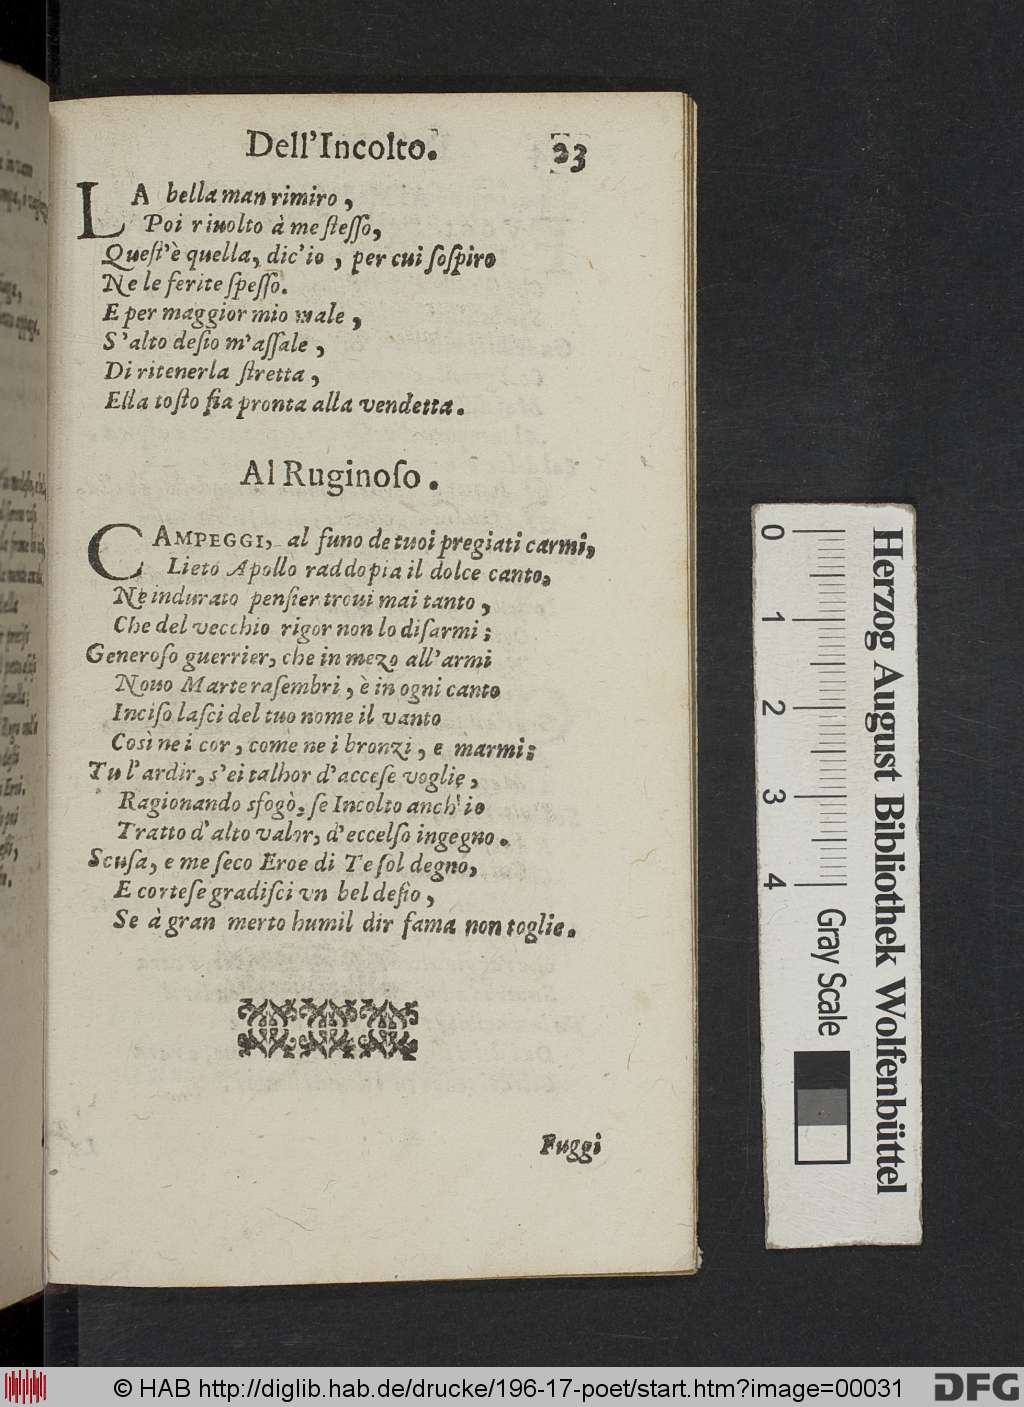 Dell'Incolto. 23
LA bella man rimiro,
Poi riuolto à me ſteſſo,
Queſt'è quella, dic'io, per cui ſoſpiro
Ne le ferite ſpeſſo.
E per maggior mio male,
S'alto deſio m'aſſale,
Di ritenerla ſtretta,
Ella toſto fia pronta alla vendetta.
Al Ruginoſo.
CAMPEGGI, al ſuno de tuoi pregiati carmi,
Lieto Apollo raddopia il dolce canto,
Ne indurato penſier troui mai tanto,
Che del vecchio rigor non lo diſarmi;
Generoſo guerrier, che in mezo all'armi
Nouo Marte raſembri, è in ogni canto
Inciſo laſci del tuo nome il vanto
Così ne i cor, come ne i bronzi, e marmi;
Tu l'ardir, s'ei talhor d'acceſe voglie,
Ragionando sfogò, ſe Incolto anch'io
Tratto d'alto valor, d'eccelſo ingegno.
Scuſa, e me ſeco Eroe di Te ſol degno,
E corteſe gradiſci vn bel deſio,
Se à gran merto humil dir fama non toglie.
Fuggi
0 1 2 3 4
Gray Scale
Herzog August Bibliothek Wolfenbüttel
© HAB http://diglib.hab.de/drucke/196-17-poet/start.htm?image=00031
DFG